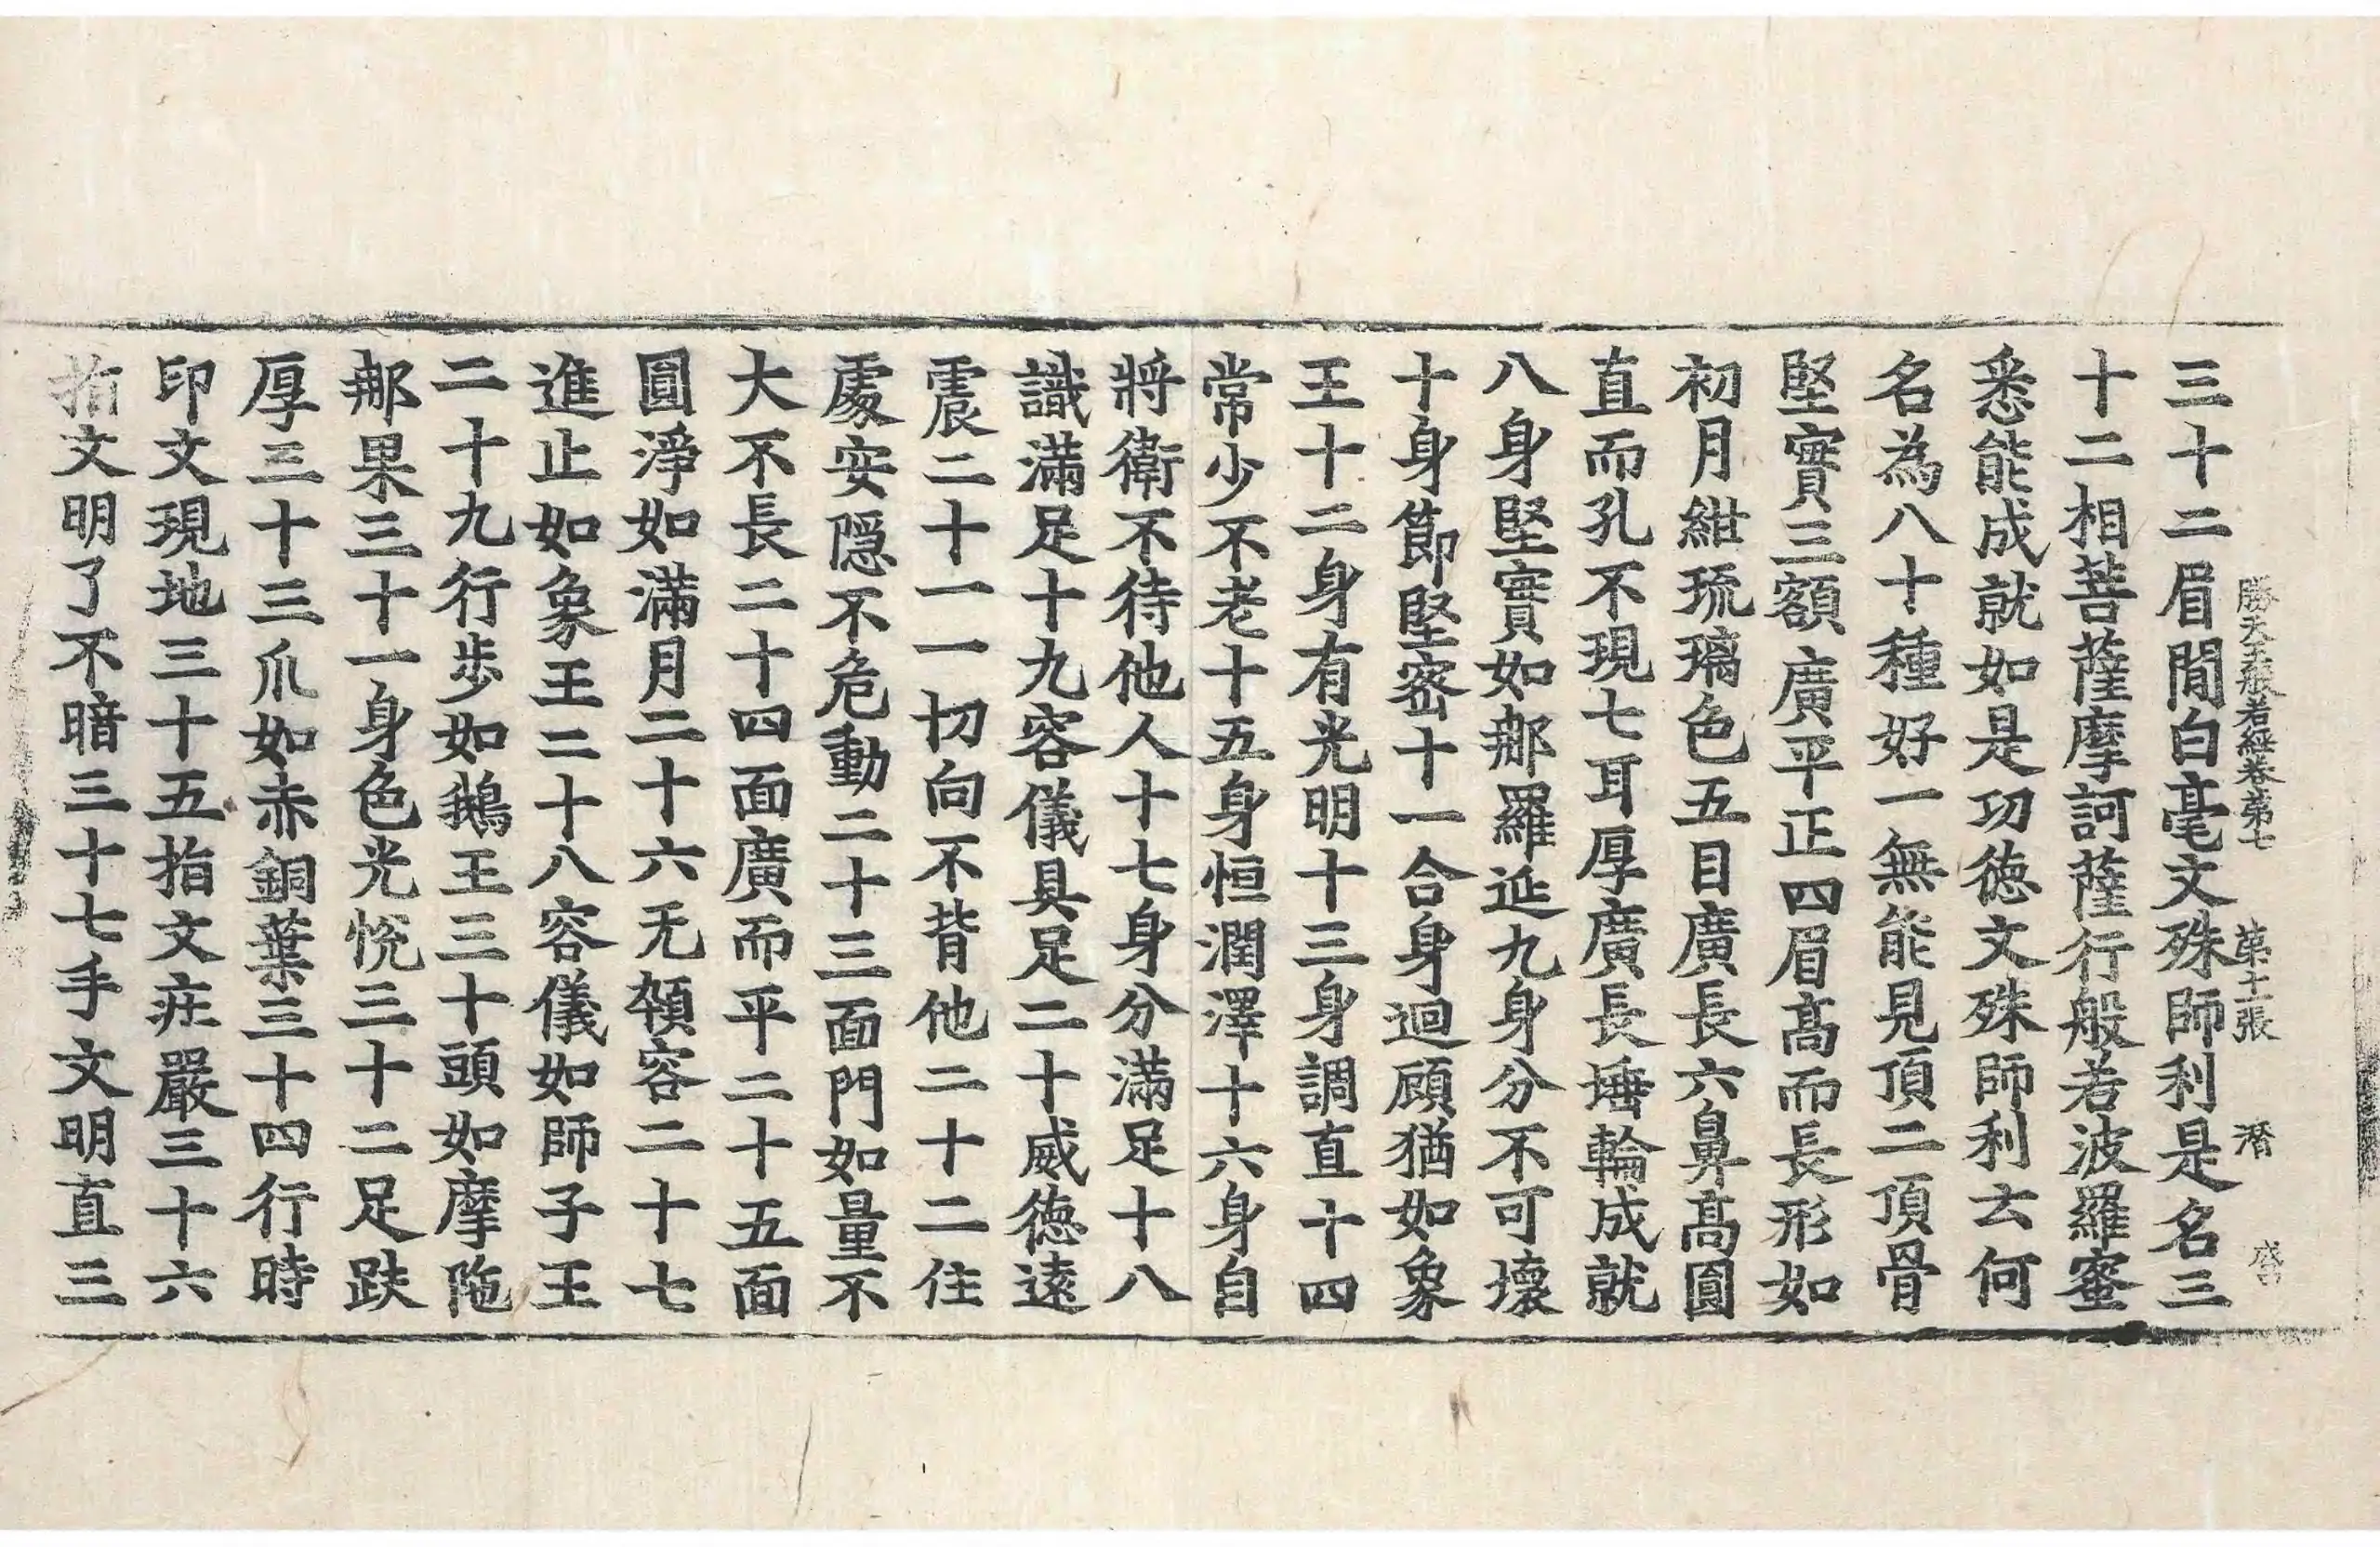 勝天王般若經卷第七　第十一張　潛
三十二眉間白毫文殊師利是名三
十二相菩薩摩訶薩行般若波羅蜜
悉能成就如是功德文殊師利云何
名為八十種好一無能見頂二頂骨
堅實三額廣平正四眉髙而長形如
初月紺琉璃色五目廣長六鼻髙圓
直而孔不現七耳厚廣長埵輪成就
八身堅實如那羅延九身分不可壞
十身節堅密十一合身迴顧猶如象
王十二身有光明十三身調直十四
常少不老十五身恒潤澤十六身自
將衛不待他人十七身分滿足十八
識滿足十九容儀具足二十威德遠
震二十一一切向不背他二十二住
處安隱不危動二十三面門如量不
大不長二十四面廣而平二十五面
圓淨如滿月二十六无顇容二十七
進止如象王二十八容儀如師子王
二十九行步如鵝王三十頭如摩陁
那果三十一身色光悅三十二足趺
厚三十三爪如赤銅葉三十四行時
印文現地三十五指文莊嚴三十六
指文明了不暗三十七手文明直三